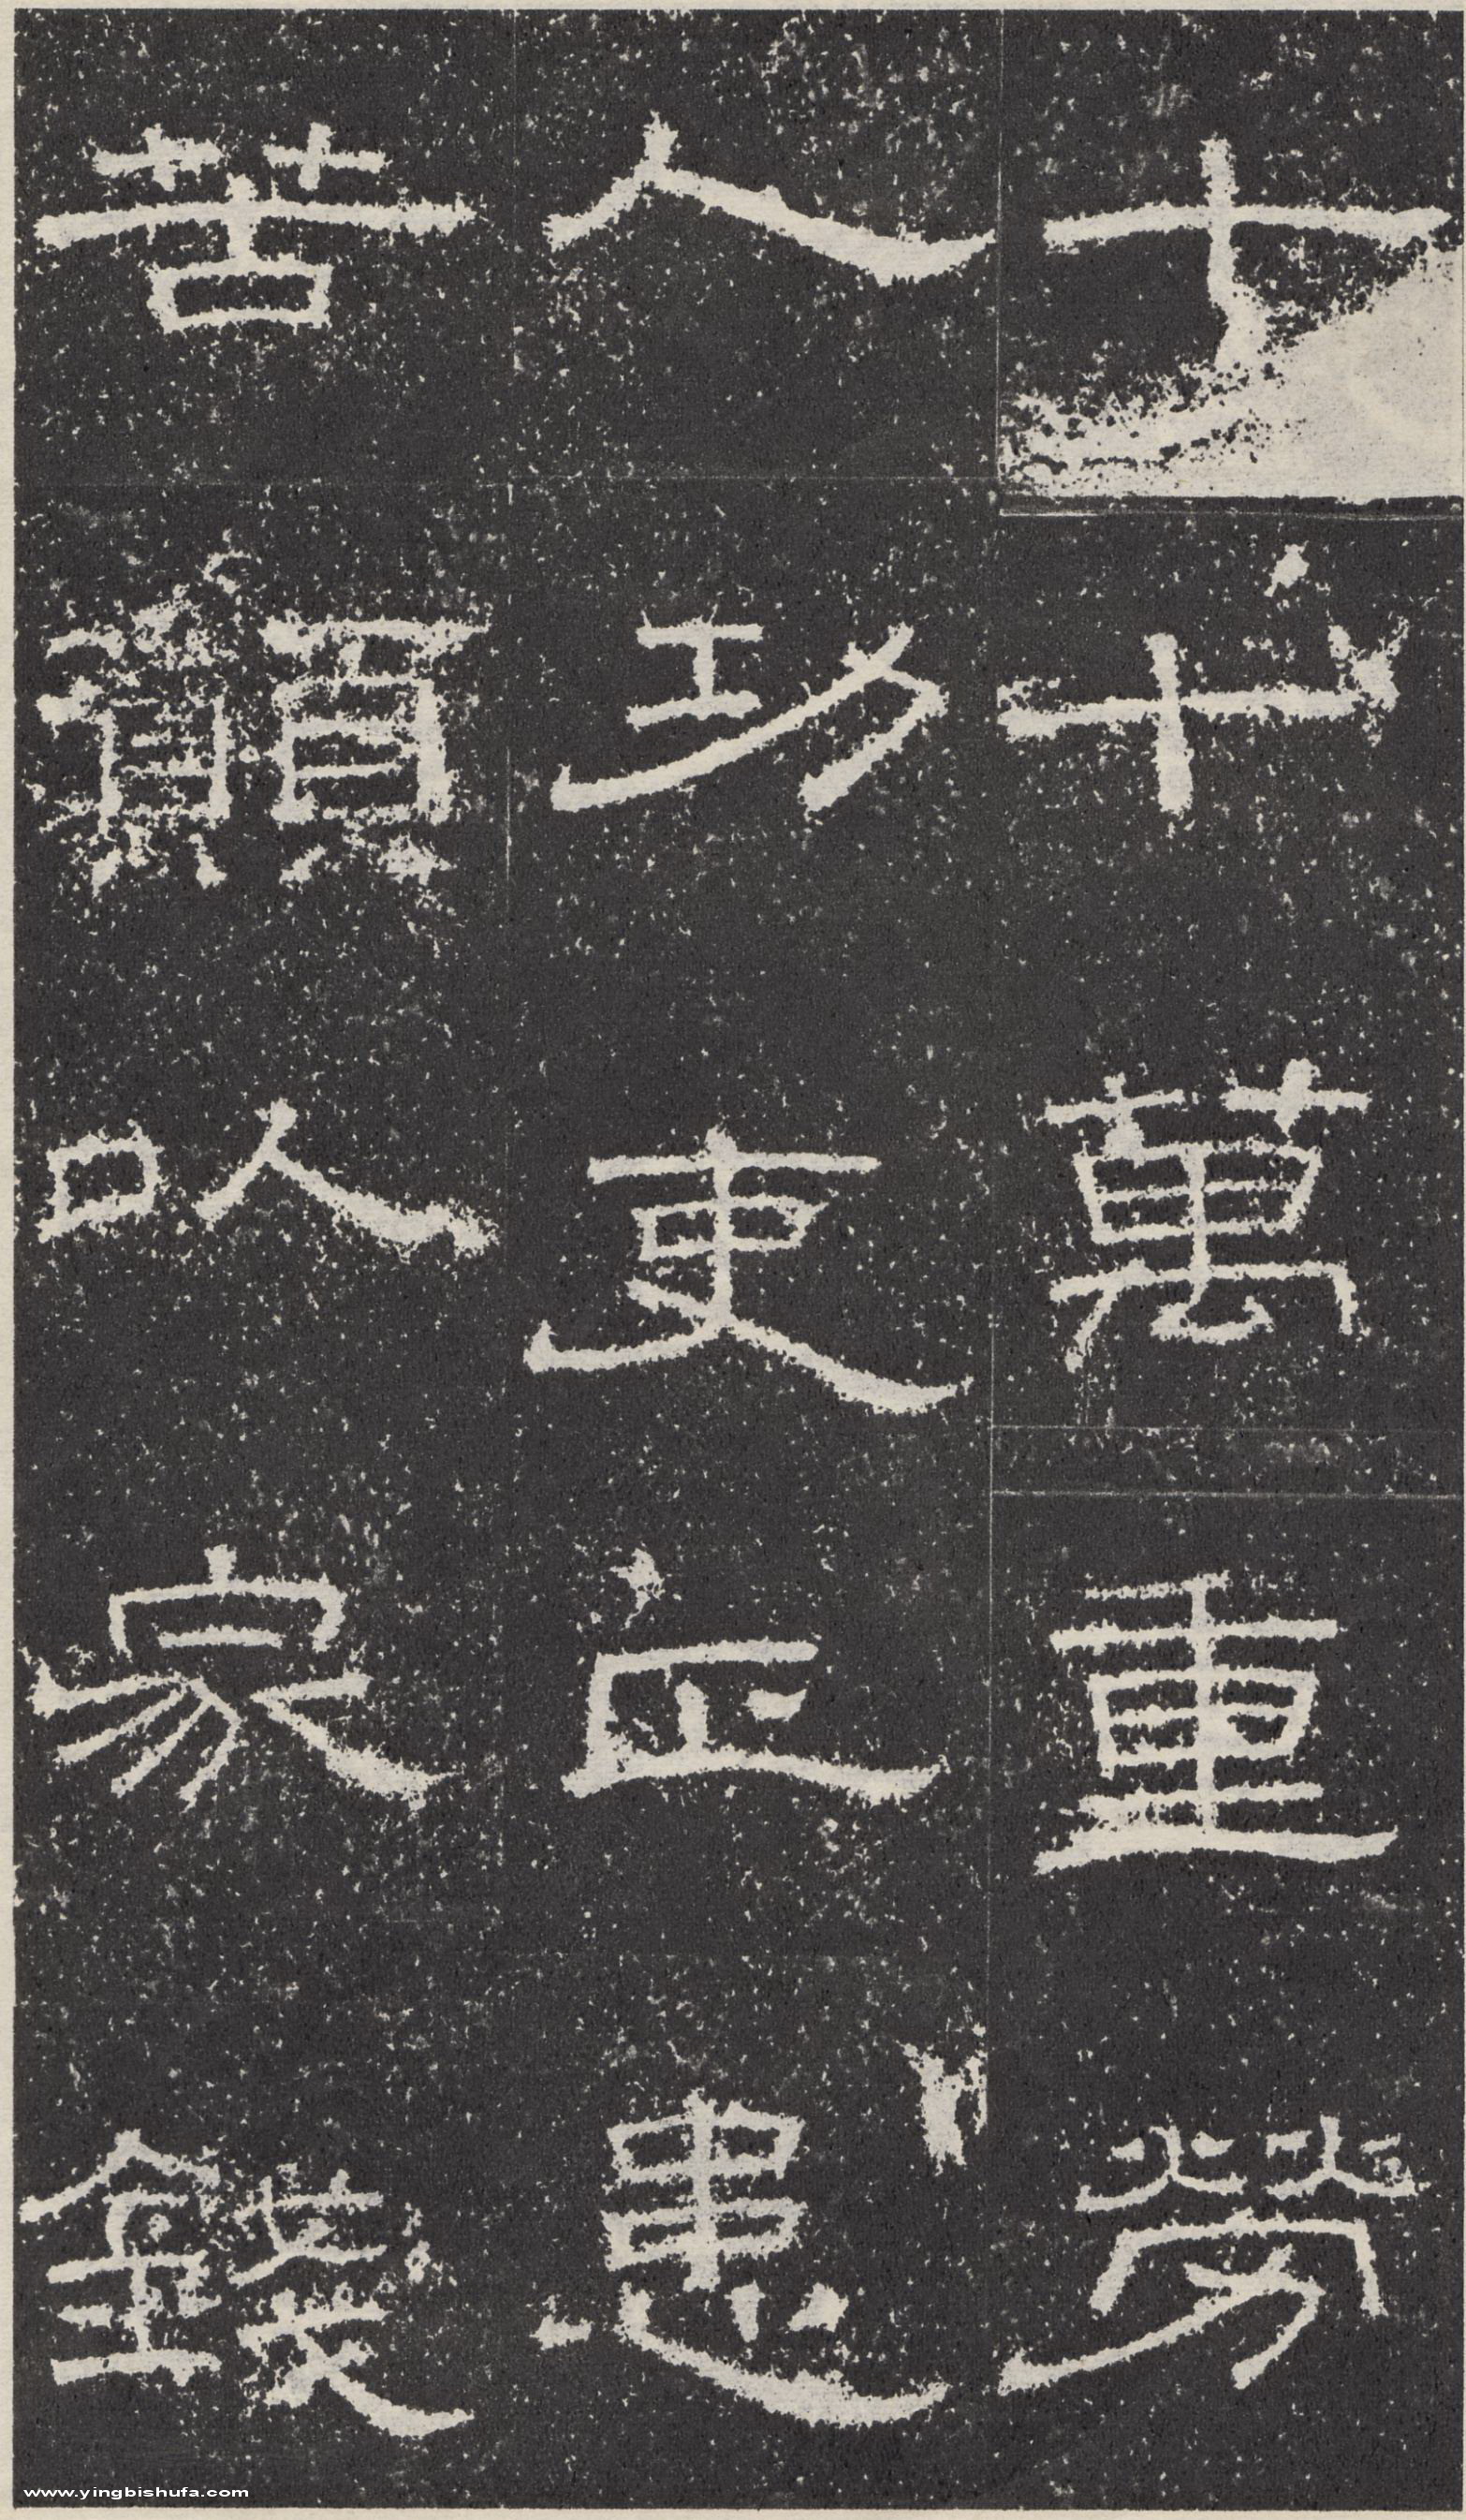 七十萬重勞
人功吏正患
苦願以家錢
www.yingbishufa.com